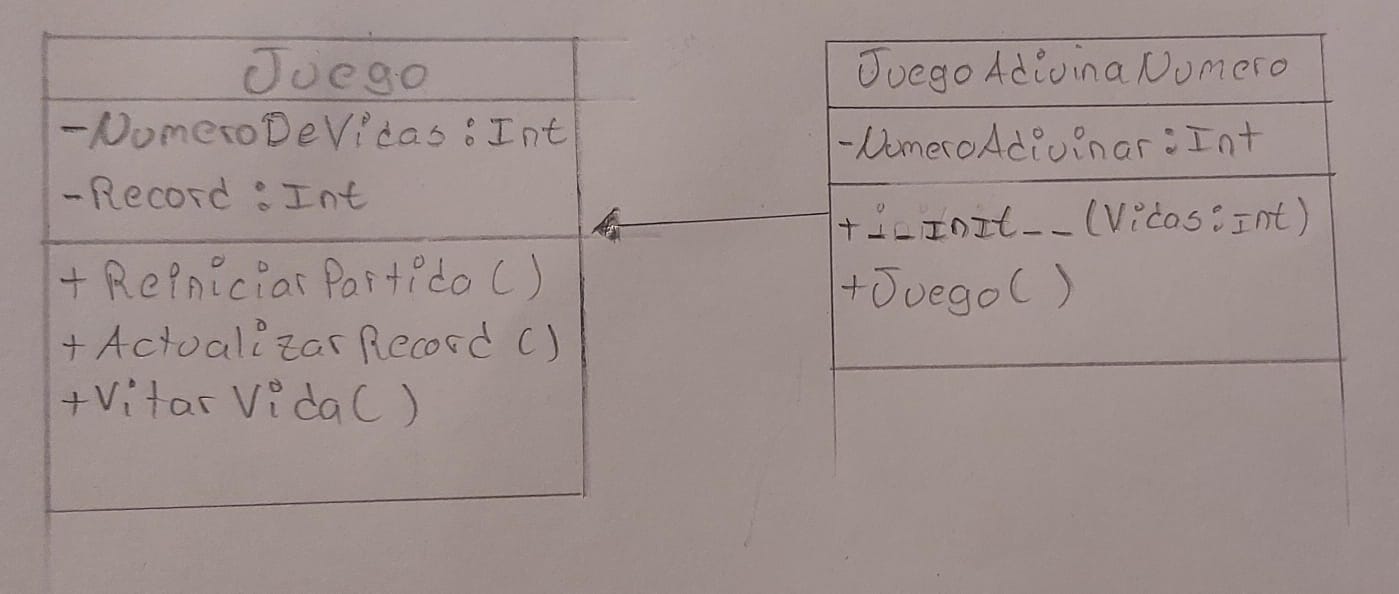 Juego
-NumeroDeVidas: Int
-Record: Int
+ReiniciarPartida()
+ActualizarRecord()
+VitarVida()
JuegoAdivinaNumero
-NumeroAdivinar: Int
+__InIt__(Vidas: Int)
+Juego()